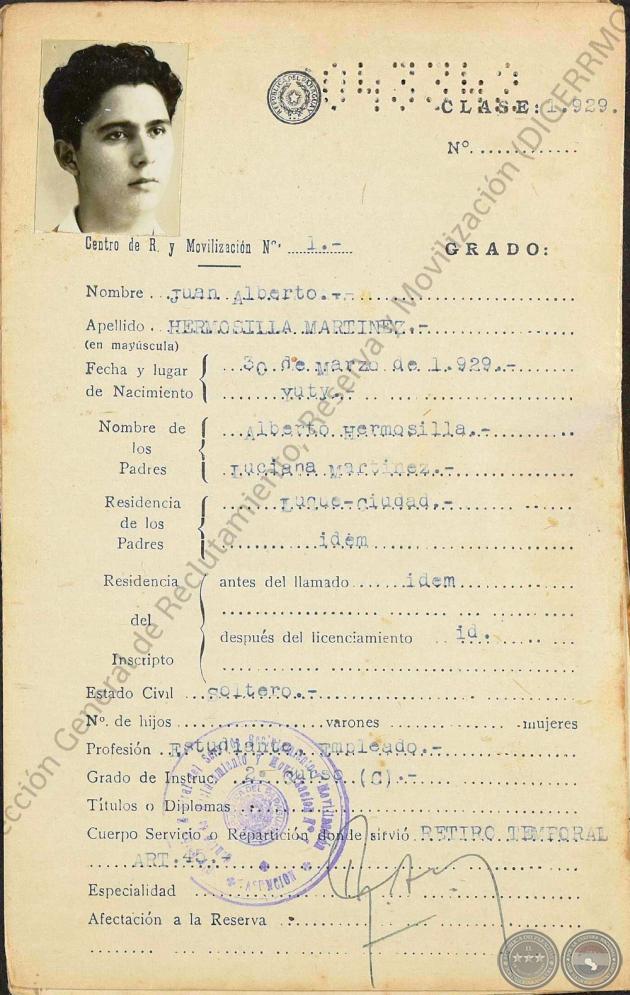 REPUBLICA DEL PARAGUAY
CLASE: 1.929.
Nº.
Centro de R. y Movilización Nº. 1.-
GRADO:
Nombre Juan Alberto.--
Apellido HERMOSILLA MARTINEZ.-
(en mayúscula)
Fecha y lugar de Nacimiento 30 de Marzo de 1.929.-
Yuty.-
Nombre de los Padres Alberto Hermosilla.-
Luciana Martinez.-
Residencia de los Padres Luque-Ciudad.-
idem
Residencia del Inscripto antes del llamado idem
después del licenciamiento id.
Estado Civil soltero.-
Nº. de hijos varones mujeres
Profesión Estudiante. Empleado.-
Grado de Instruc. 2º Curso (C).-
Títulos o Diplomas
Cuerpo Servicio o Repartición donde sirvió RETIRO TEMPORAL
ART.40.-
Especialidad
Afectación a la Reserva
ASUNCION
Dirección General de Reclutamiento, Reserva y Movilización (DIGERRMO